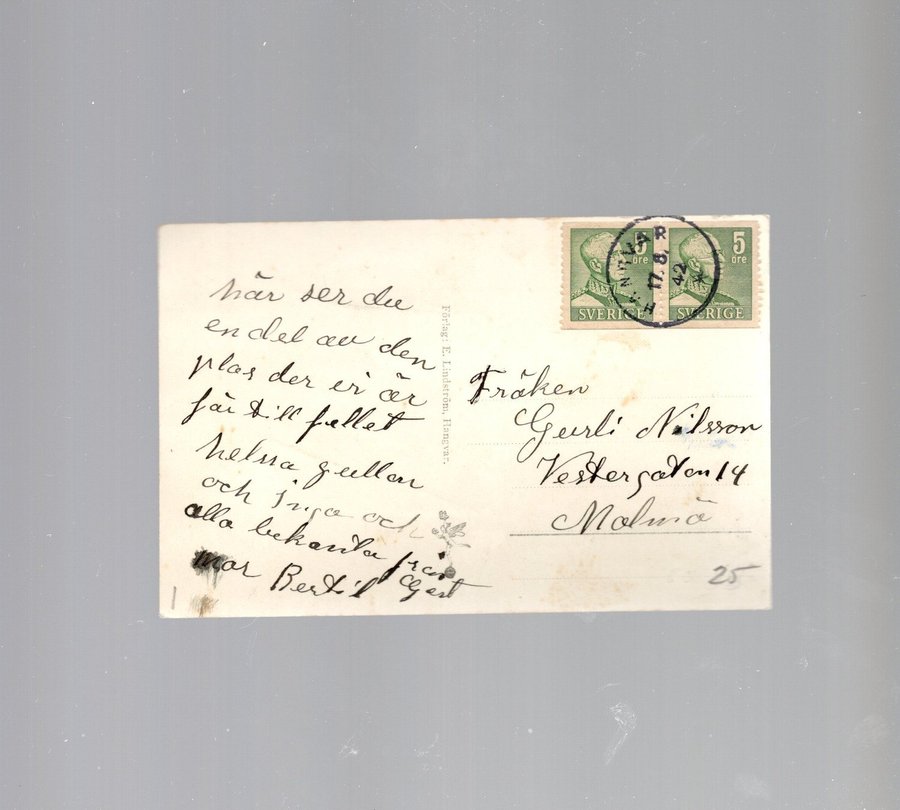 här ser du
en del av den
plas der vi är
för till fellet
helsa gullan
och inga och
alla bekanta från
mor Bertil Gert
Förlag: E. Lindström, Hangvar.
5
öre
SVERIGE
5
öre
SVERIGE
HANGVAR
17.8.
42
Fröken
Gurli Nilsson
Vestergatan 14
Malmö
25